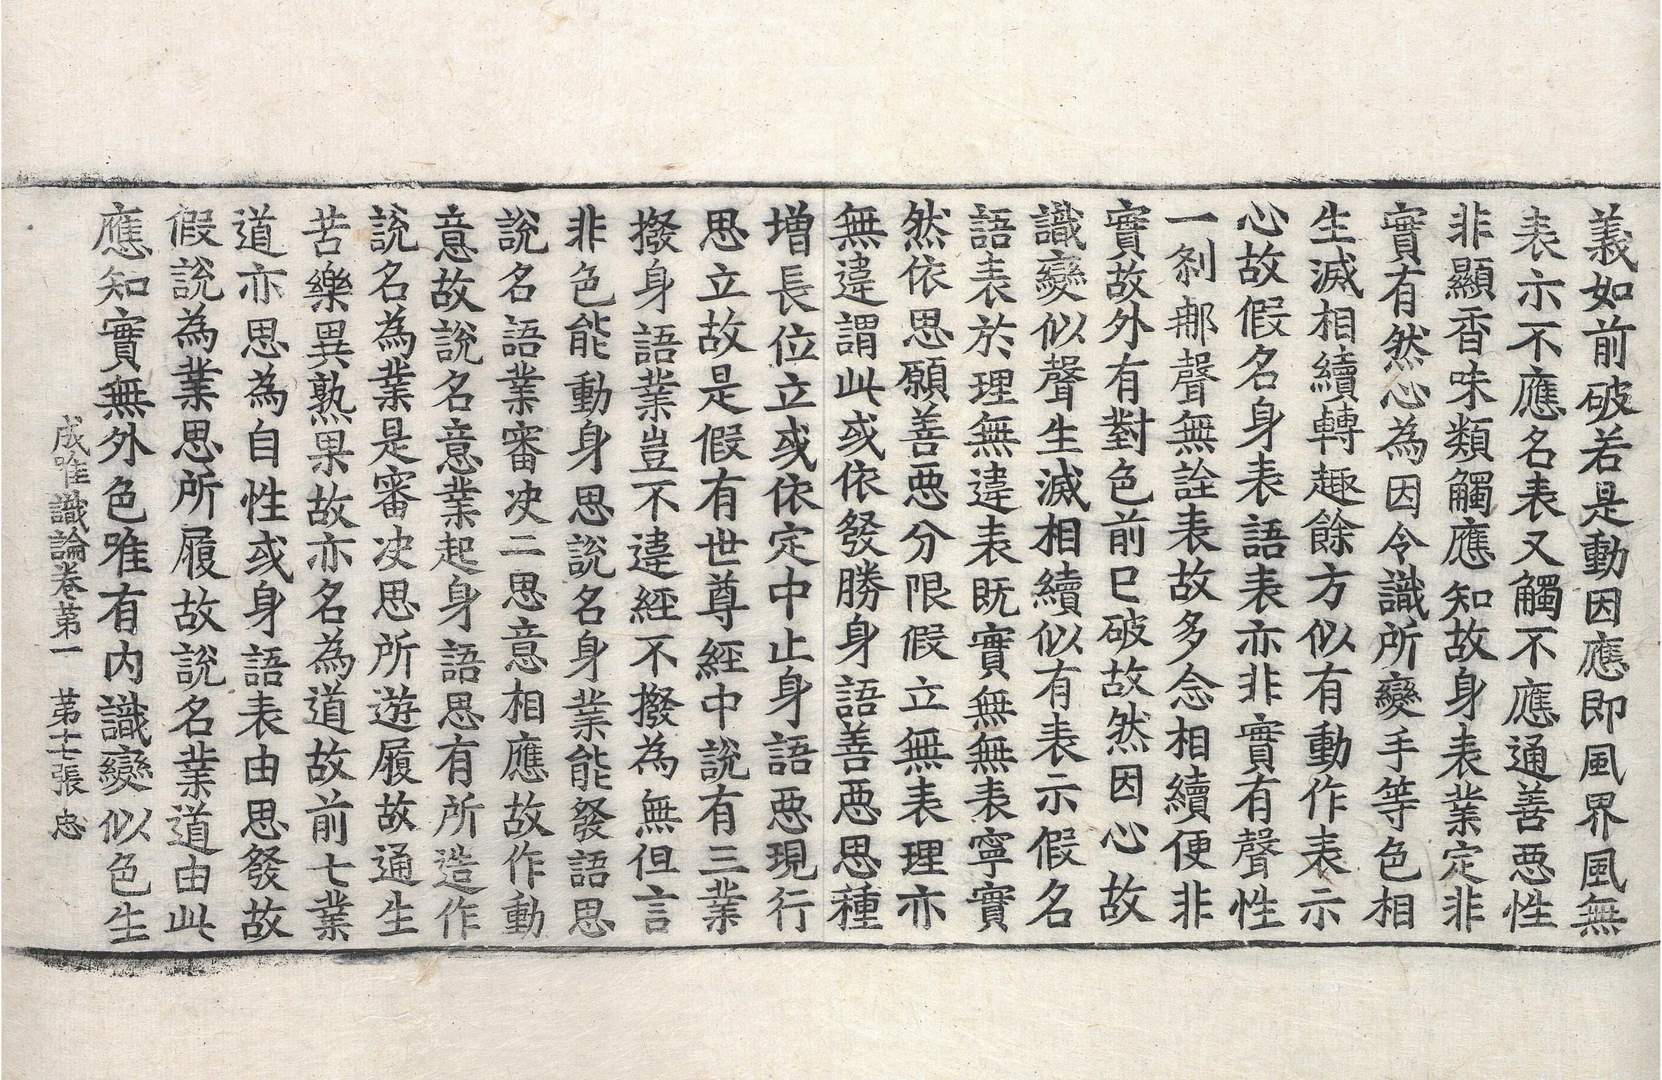 義如前破若是動因應即風界風無
表示不應名表又觸不應通善惡性
非顯香味類觸應知故身表業定非
實有然心為因令識所變手等色相
生滅相續轉趣餘方似有動作表示
心故假名身表語表亦非實有聲性
一刹那聲無詮表故多念相續便非
實故外有對色前已破故然因心故
識變似聲生滅相續似有表示假名
語表於理無違表既實無無表寧實
然依思願善惡分限假立無表理亦
無違謂此或依發勝身語善惡思種
增長位立或依定中止身語惡現行
思立故是假有世尊經中說有三業
撥身語業豈不違經不撥為無但言
非色能動身思說名身業能發語思
說名語業審决二思意相應故作動
意故說名意業起身語思有所造作
說名為業是審决思所遊履故通生
苦樂異熟果故亦名為道故前七業
道亦思為自性或身語表由思發故
假說為業思所履故說名業道由此
應知實無外色唯有內識變似色生
成唯識論卷第一　第十七張　忠